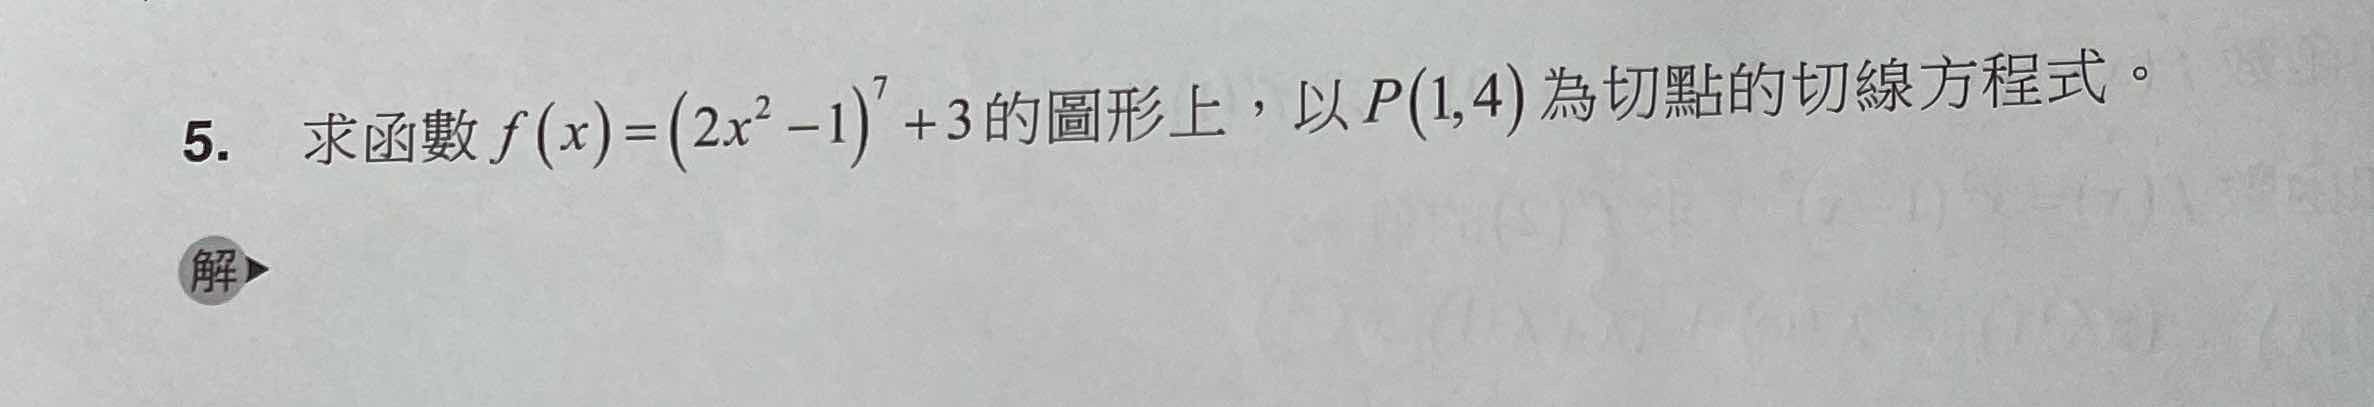 5. 求函數 f(x)=(2x²−1)⁷+3的圖形上，以 P(1,4) 為切點的切線方程式。
解